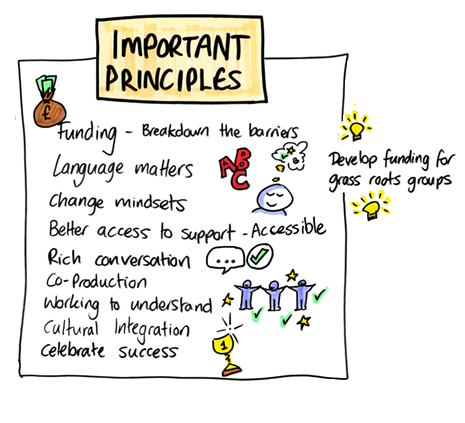 IMPORTANT
PRINCIPLES
£
Funding - Breakdown the barriers
Language matters
ABC
Change mindsets
Better access to support - Accessible
Rich conversation
Co-Production
Working to understand
Cultural Integration
Celebrate success
1
Develop funding for
grass roots groups